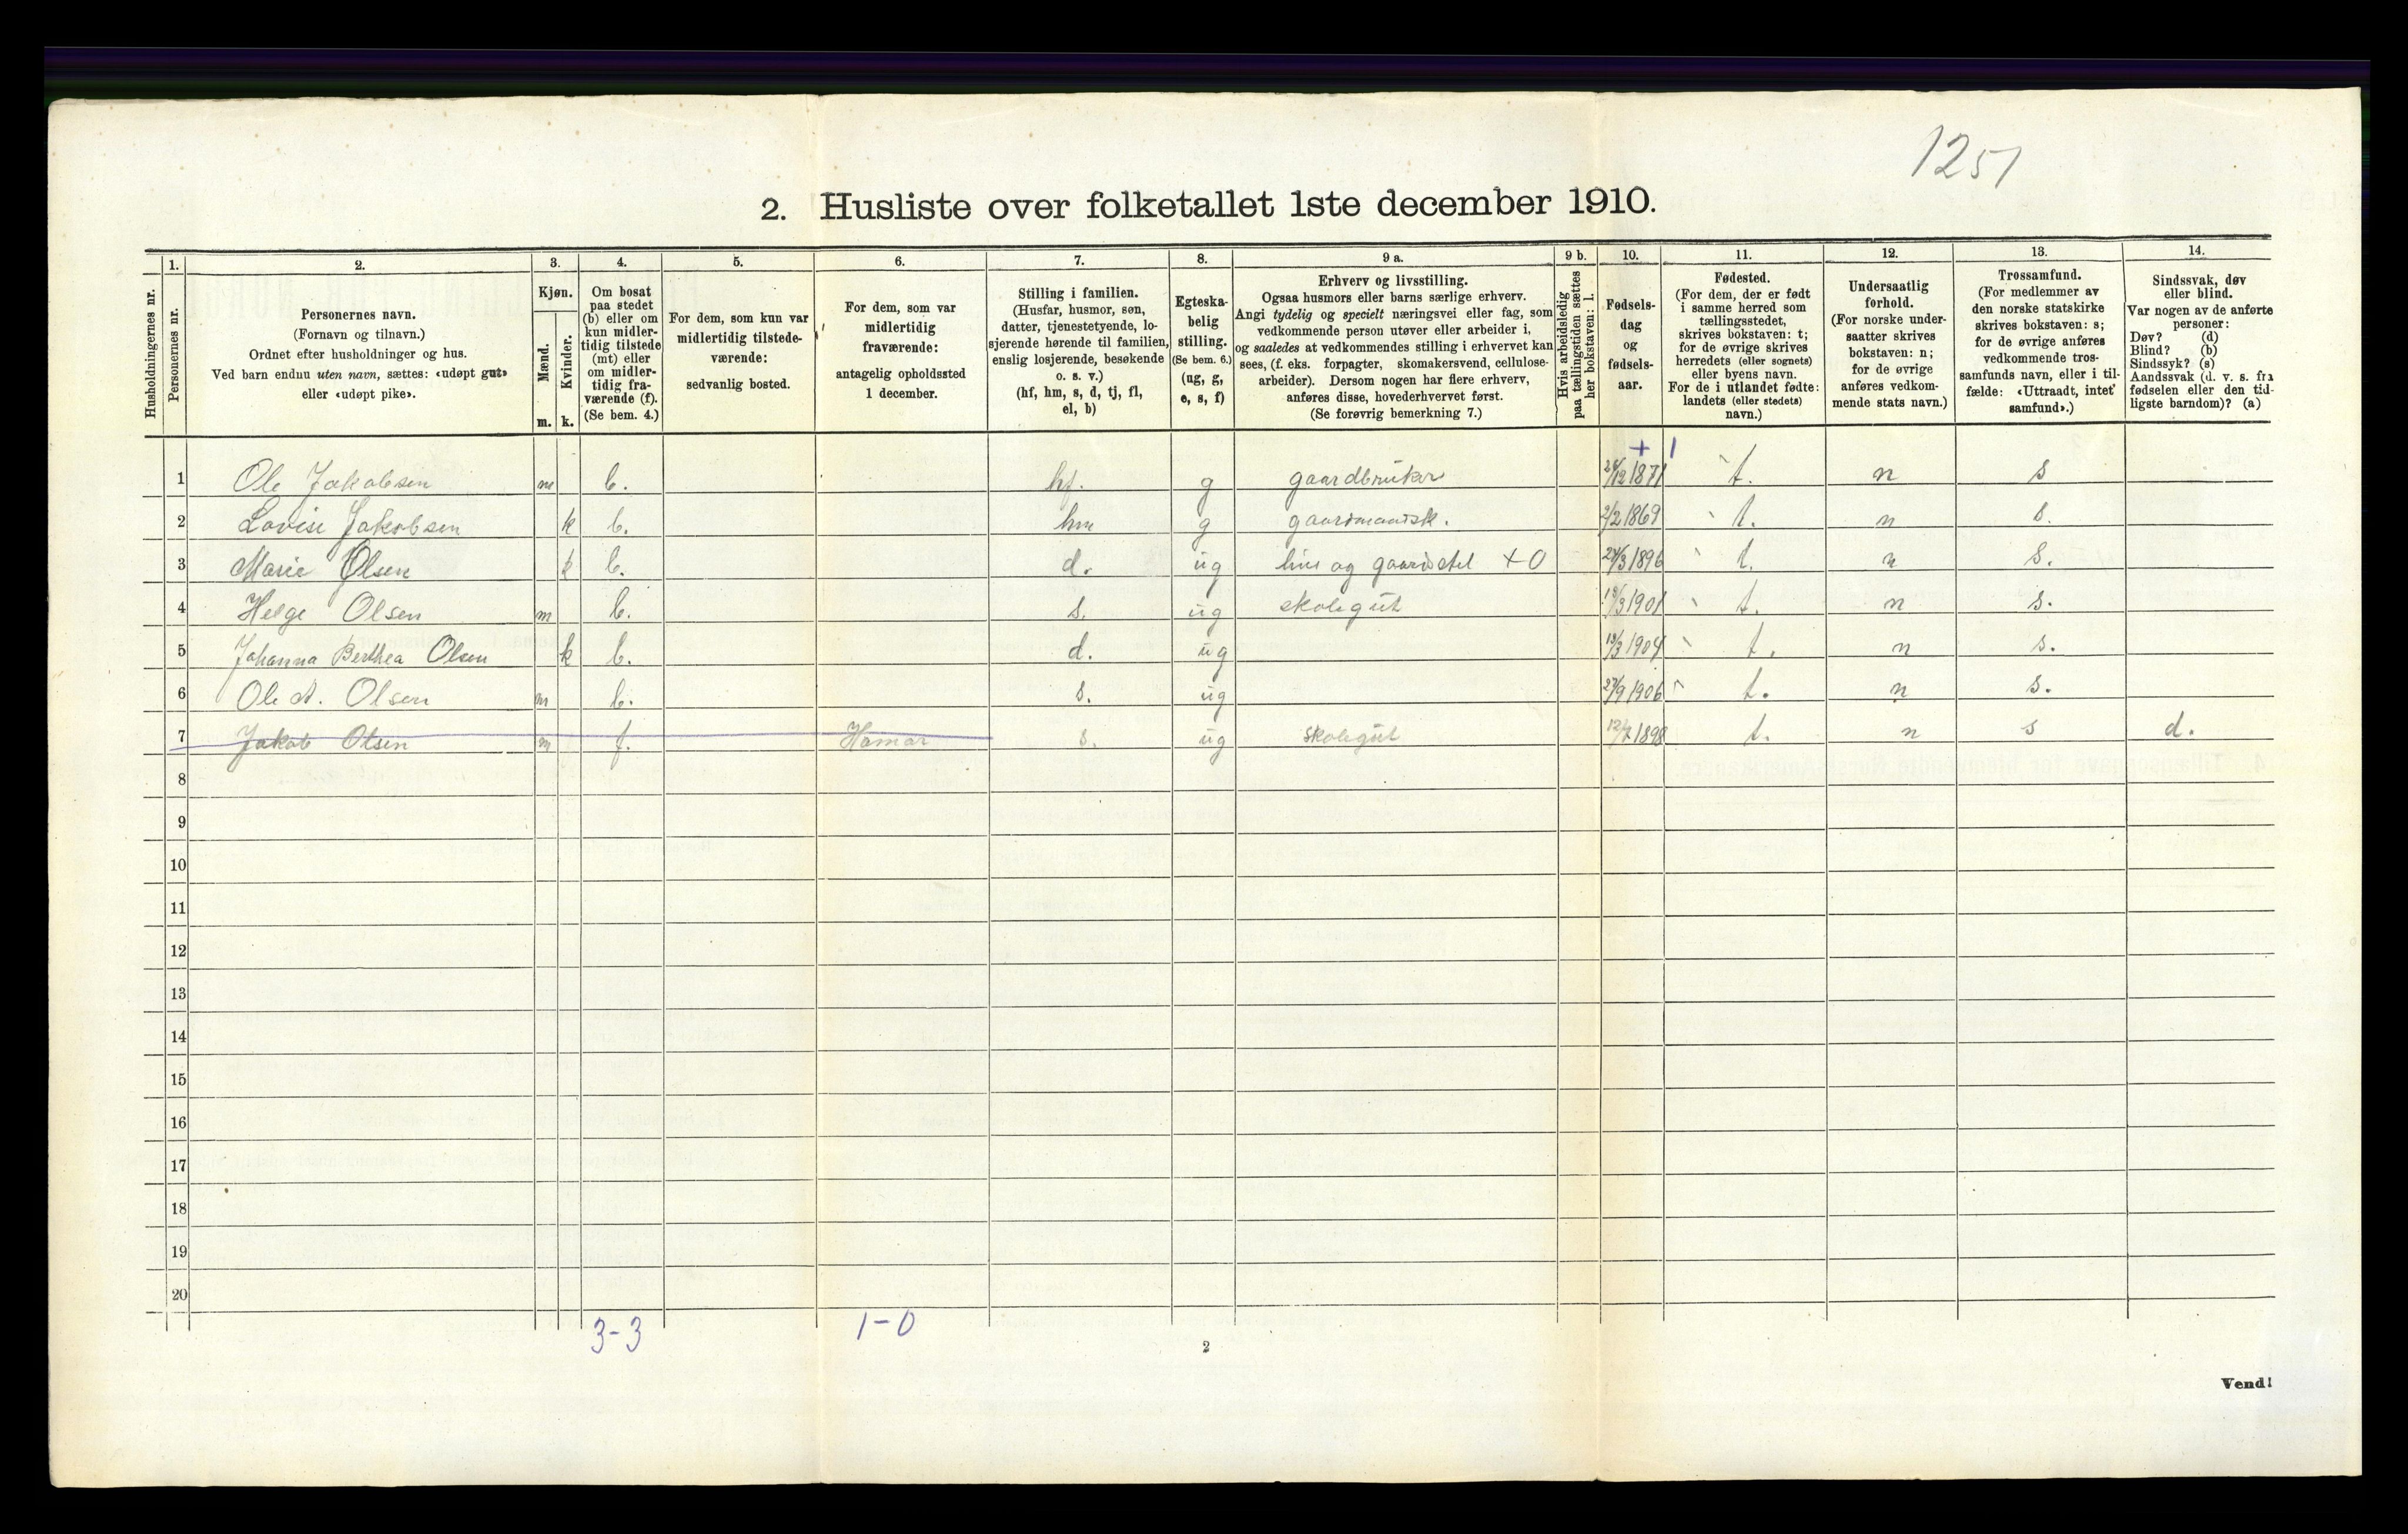 1251
2. Husliste over folketallet 1ste december 1910.
Husholdningernes nr.
1.
Personernes nr.
2.
Personernes navn.
(Fornavn og tilnavn.)
Ordnet efter husholdninger og hus.
Ved barn endnu uten navn, sættes: «udøpt gut»
eller «udøpt pike».
3.
Kjøn.
Mænd.
Kvinder.
m. k.
4.
Om bosat
paa stedet
(b) eller om
kun midler-
tidig tilstede
(mt) eller
om midler-
tidig fra-
værende (f).
(Se bem. 4.)
5.
For dem, som kun var
midlertidig tilstede-
værende:
sedvanlig bosted.
6.
For dem, som var
midlertidig
fraværende:
antagelig opholdssted
1 december.
7.
Stilling i familien.
(Husfar, husmor, søn,
datter, tjenestetyende, lo-
sjerende hørende til familien,
enslig losjerende, besøkende
o. s. v.)
(hf, hm, s, d, tj, fl,
el, b)
8.
Egteska-
belig
stilling.
(Se bem. 6.)
(ug, g,
e, s, f)
9 a.
Erhverv og livsstilling.
Ogsaa husmors eller barns særlige erhverv.
Angi tydelig og specielt næringsvei eller fag, som
vedkommende person utøver eller arbeider i,
og saaledes at vedkommendes stilling i erhvervet kan
sees, (f. eks. forpagter, skomakersvend, cellulose-
arbeider). Dersom nogen har flere erhverv,
anføres disse, hovederhvervet først.
(Se forøvrig bemerkning 7.)
9 b.
Hvis arbeidsledig
paa tællingstiden sættes
her bokstaven: l.
10.
Fødsels-
dag
og
fødsels-
aar.
11.
Fødested.
(For dem, der er født
i samme herred som
tællingsstedet,
skrives bokstaven: t;
for de øvrige skrives
herredets (eller sognets)
eller byens navn.
For de i utlandet fødte:
landets (eller stedets)
navn.)
12.
Undersaatlig
forhold.
(For norske under-
saatter skrives
bokstaven: n;
for de øvrige
anføres vedkom-
mende stats navn.)
13.
Trossamfund.
(For medlemmer av
den norske statskirke
skrives bokstaven: s;
for de øvrige anføres
vedkommende tros-
samfunds navn, eller i til-
fælde: «Uttraadt, intet
samfund».)
14.
Sindssvak, døv
eller blind.
Var nogen av de anførte
personer:
Døv? (d)
Blind? (b)
Sindssyk? (s)
Aandssvak (d. v. s. fra
fødselen eller den tid-
ligste barndom)? (a)
+ 1
1 Ole Jakobsen m b. hf. g gaardbruker 24/12 1871 t. n s
2 Lovise Jakobsen k b. hm g 2/2 1869 t. n s.
3 Marie Olsen k b. d. ug hus og gaardstel +0 24/3 1896 t. n s.
4 Helge Olsen m b. s. ug skolegut 1901 t. n s.
5 Johanna Berthea Olsen k b. d. ug 1904 t. n s.
6 Ole A. Olsen m b. s. ug 27/9 1906 t. n s.
7 Jakob Olsen m f. Hamar s. ug skolegut 1898 t. n s d.
8
9
10
11
12
13
14
15
16
17
18
19
20
3-3 1-0
2
Vend!